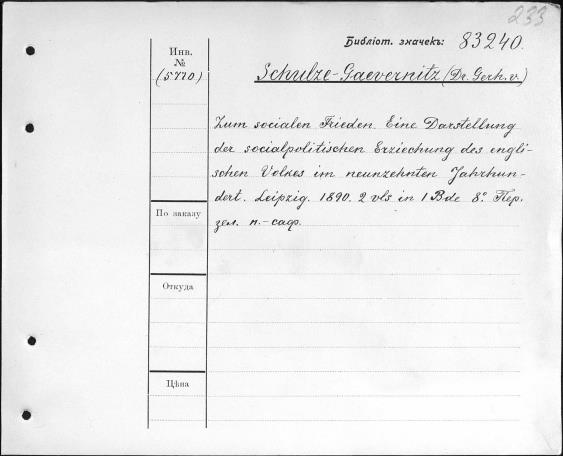 233
Библіот. значекъ: 83240.
Инв.
№
(5770)
Schulze-Gaevernitz (Dr. Gerh. v.)
Zum socialen Frieden. Eine Darstellung
der socialpolitischen Erziechung des engli-
schen Volkes im neunzehnten Jahrhun-
dert. Leipzig. 1890. 2 vls in 1 Bde 8º. Пер.
зел. п.-саф.
По заказу
Откуда
Цѣна